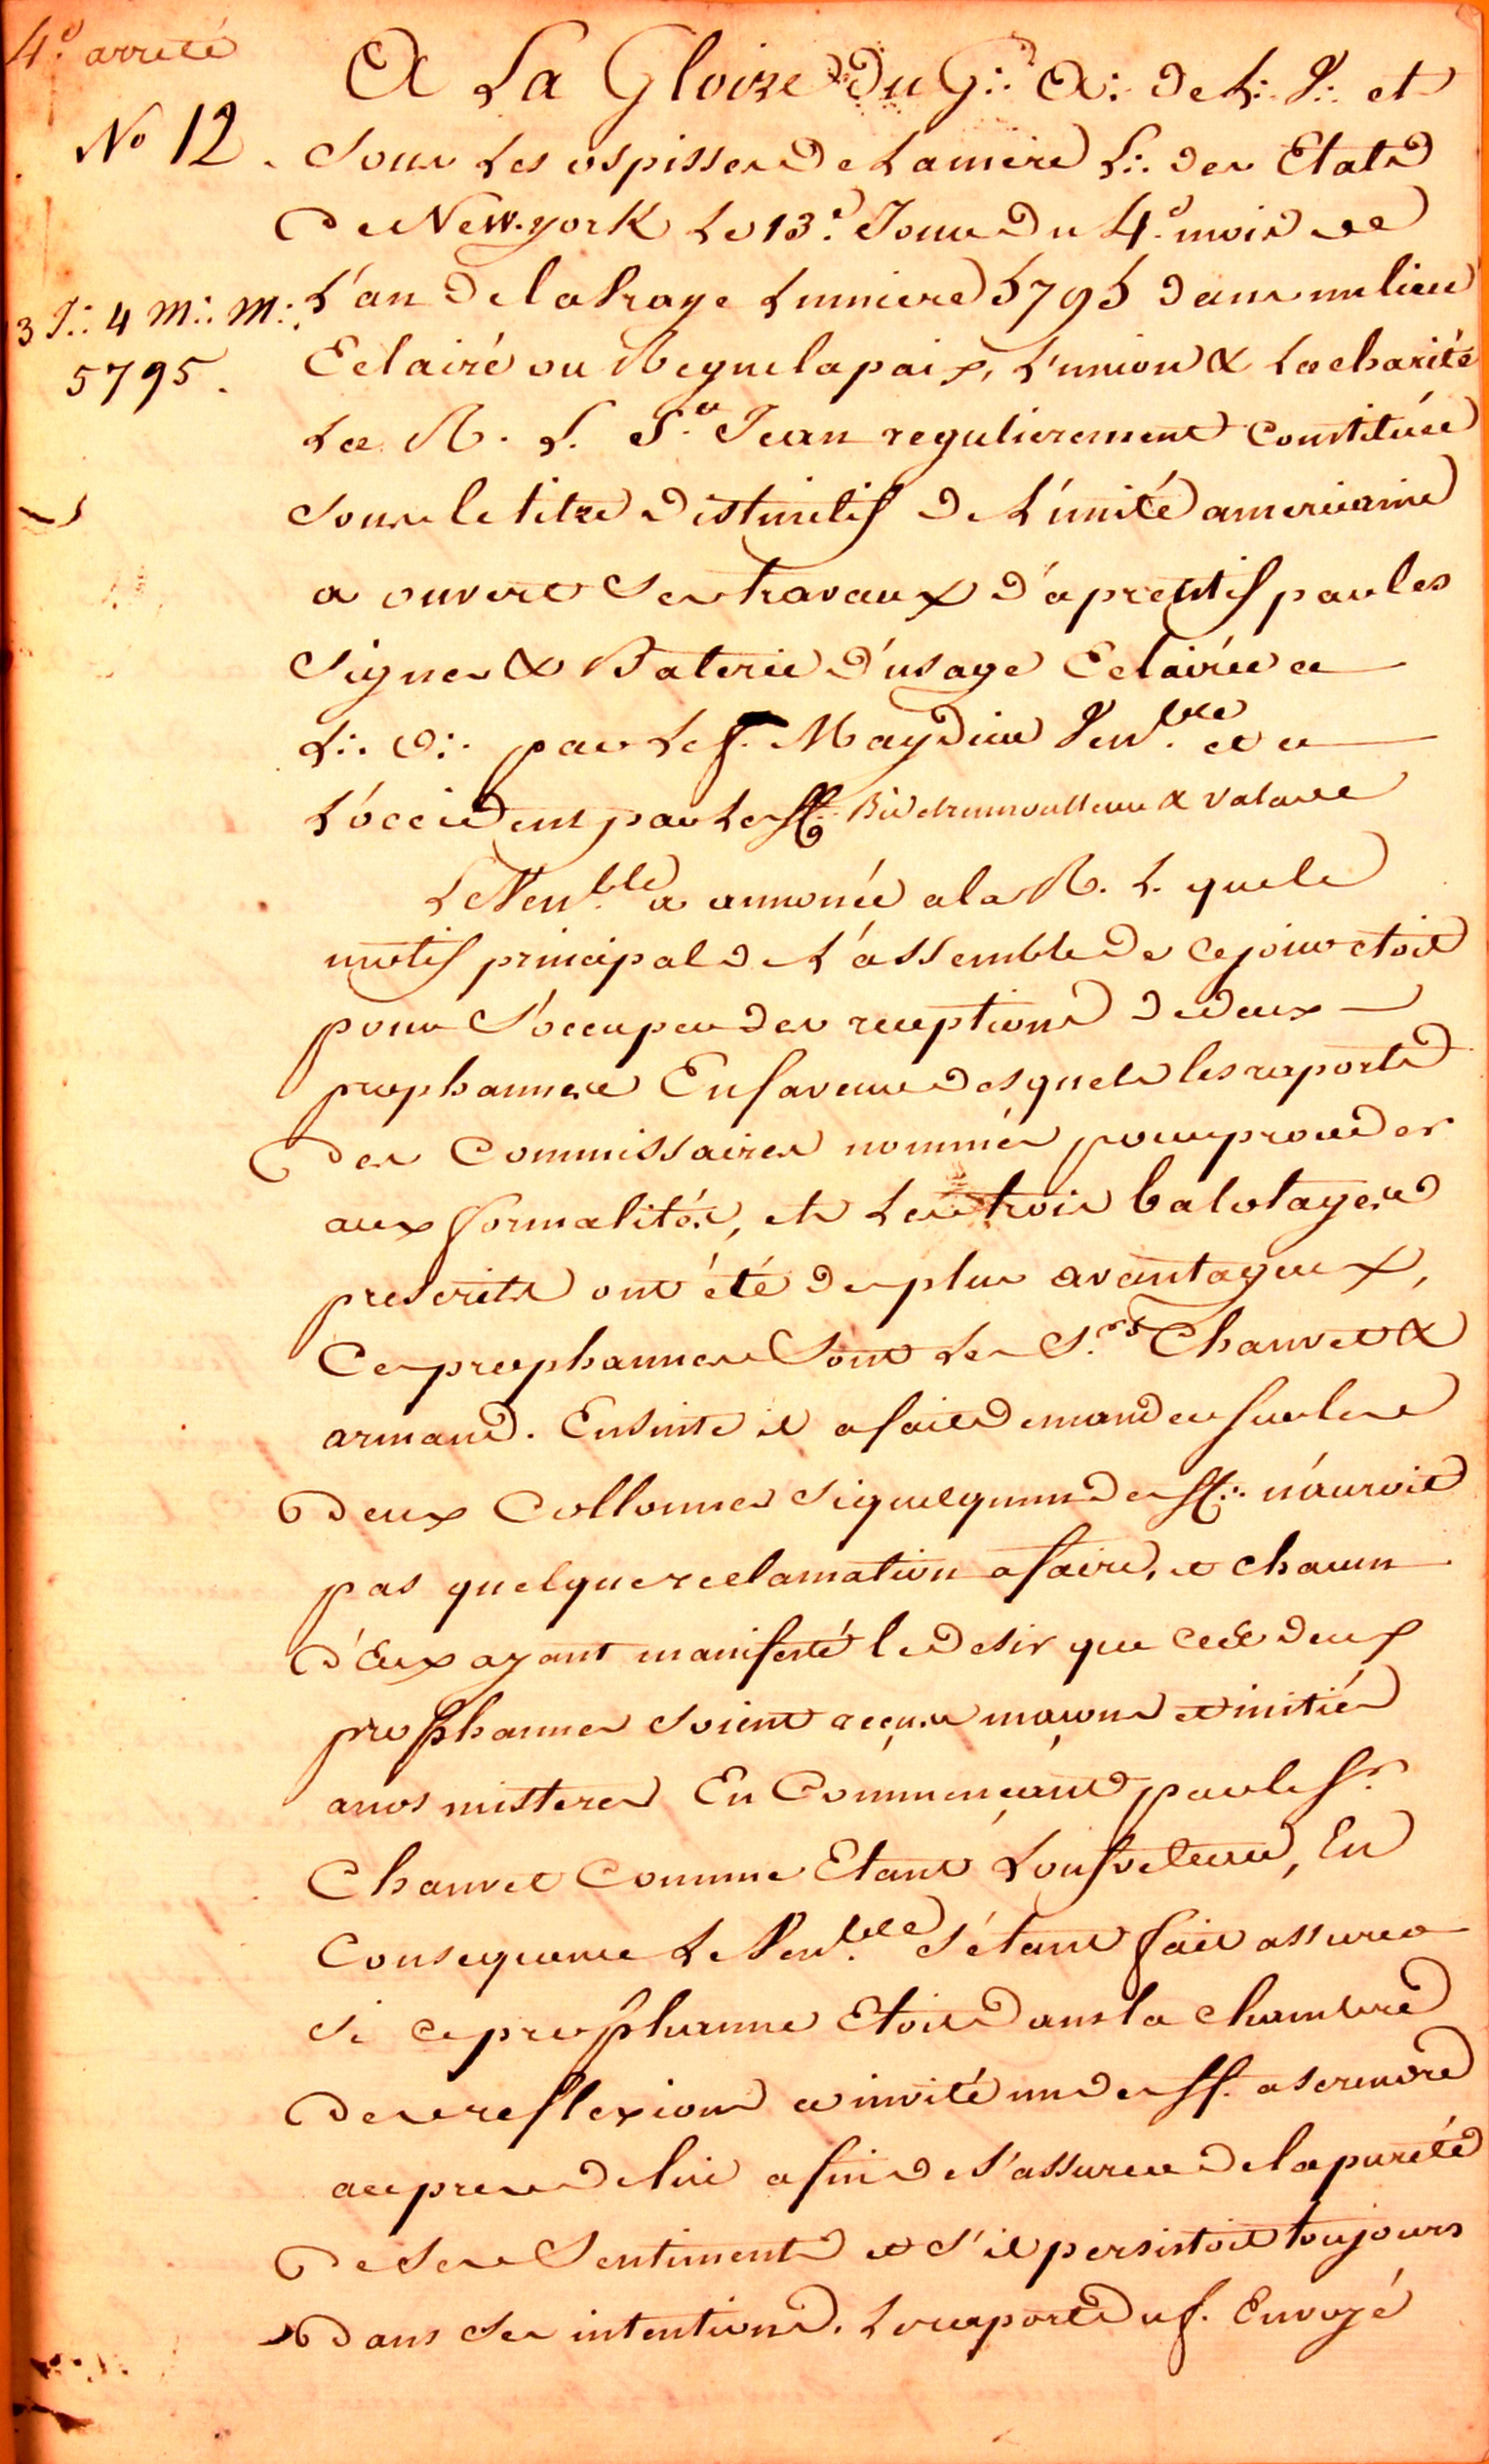 4e. arreté
No 12.
3 J∴ 4 M∴ M∴
5795.
A La Gloire du G∴ A∴ de L∴ V∴ et
Sous Les ospisses de La mere L∴ des Etats
de New-york Le 13e. Jour du 4e. mois de
L'an de la Vraye Lumiere 5795 dans un lieu
Eclairé ou Regne la paix, L'union & La charité
La R. L. St. Jean regulierement Constituée
Sous le titre distinctif de L'unité americaine
a ouvert Ses travaux d'aprentif par les
Signes & Baterie d'usage Eclairée a
L∴ O∴ par Le f. Maydieu Venble. et a
L'occident par Les ff∴ & Valave
Le Venble. a annoncé a la R. L. que le
motif principal de L'assemblé de ce jour etoit
pour S'occuper des receptions de deux
prophannes En faveur desquels les raports
des Commissaires nommés pour proceder
aux formalités, et Les trois balotages
prescrits ont été des plus avantageux,
Ces prophannes Sont Les Srs. Chauvet &
armand. Ensuite il a fait demander sur les
deux Collonnes Si quelqu'un des ff∴ n'auroit
pas quelque reclamation a faire, et chacun
d'Eux ayant manifesté le desir que ces deux
prophannes Soient reçus maçons et initiés
a nos misteres En Commençant par le Sr.
Chauvet Comme Etant Loufveteau, En
Consequence Le Venble. S'étant fait assurer
Si ce prophanne Etoit dans la chambre
des reflexions a invité un des ff. a se rendre
aupres de lui afin de s'assurer de la pureté
de Ses Sentiments et S'il persistoit toujours
dans Ses intentions. Le raport du f. Envoyé